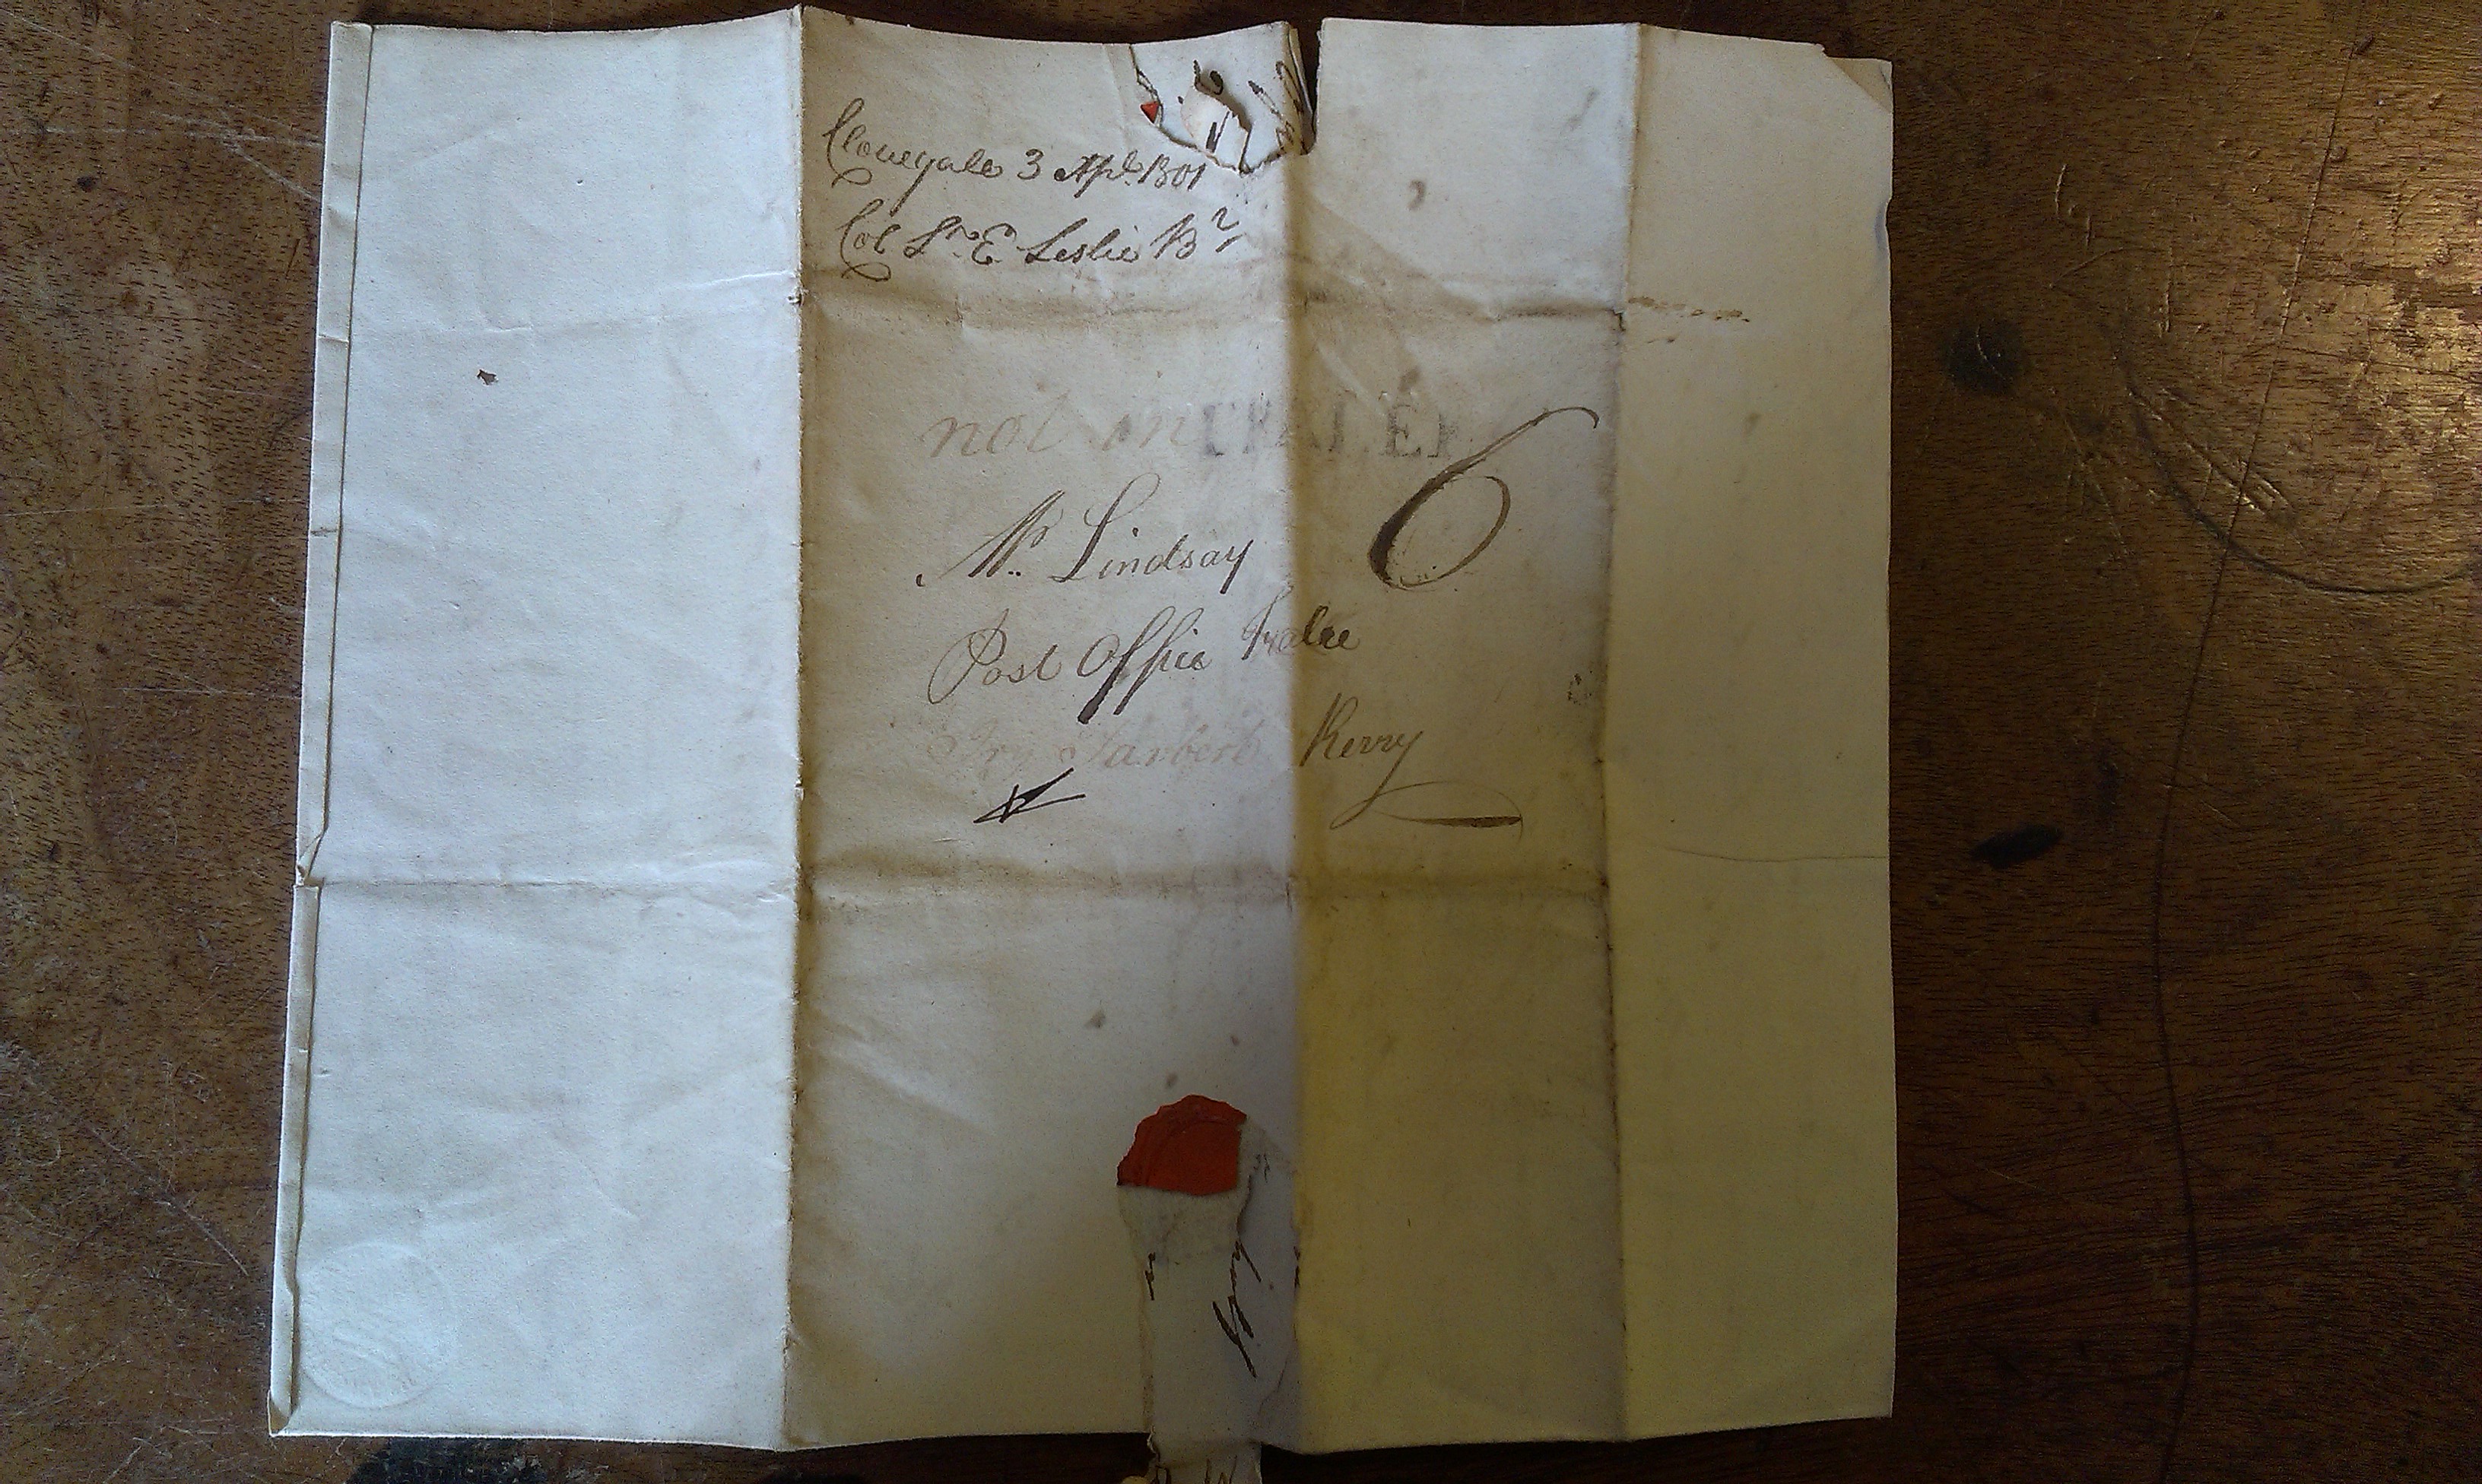 Clonegale 3 Apl. 1801
Col Sr. E. Leslie Bt
not in TRALEE
6
Mr. Lindsay
Post Office Tralee
Try Tarbert Kerry